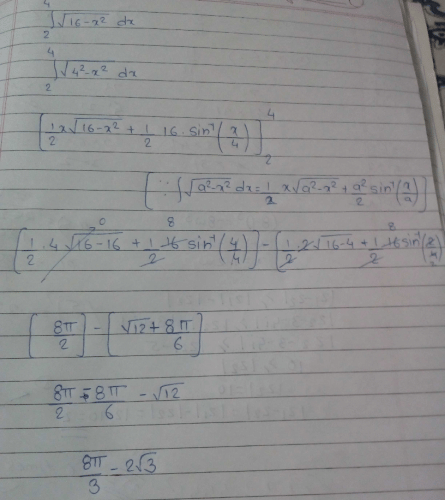 ∫₂⁴ √16-x² dx
∫₂⁴ √4²-x² dx
[1/2 x√16-x² + 1/2 16 · sin⁻¹(x/4)]₂⁴
[∵ ∫√a²-x² dx = 1/2 x√a²-x² + a²/2 sin⁻¹(x/a)]
[1/2 · 4 √16-16 0 + 1/2 16 8 sin⁻¹(4/4)] - [1/2 · 2√16-4 + 1/2 16 8 sin⁻¹(2/4)]
[8π/2] - [√12 + 8π/6]
8π/2 - 8π/6 - √12
8π/3 - 2√3